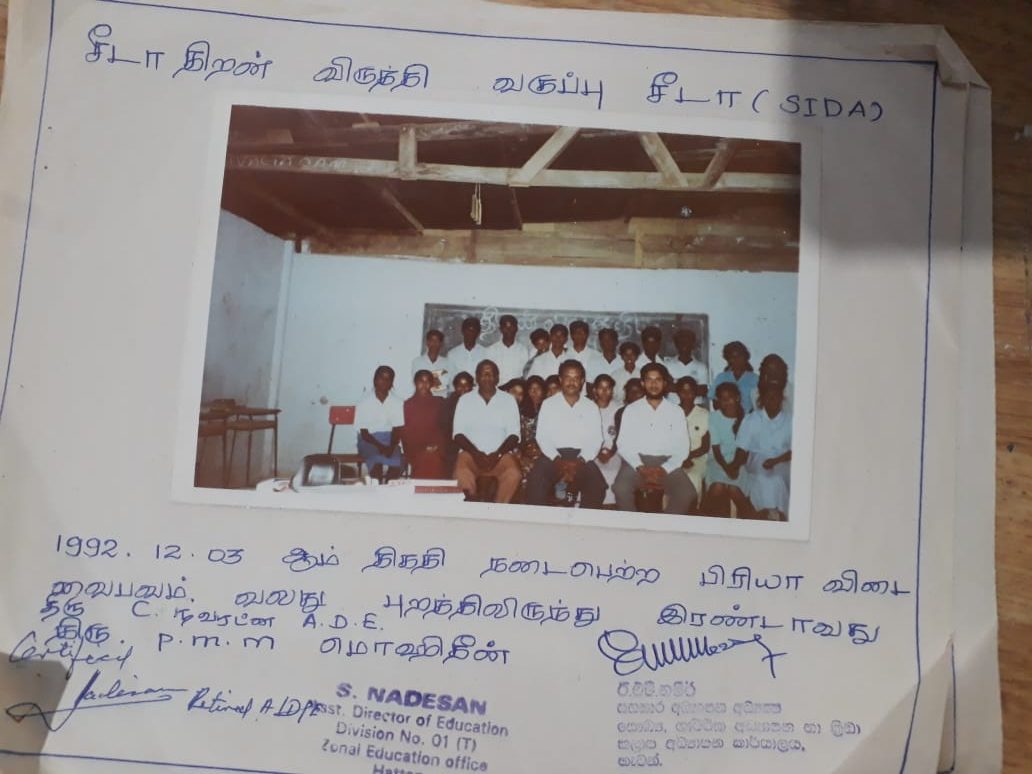 சீடா திறன் விருத்தி வகுப்பு சீடா (SIDA)
1992. 12. 03 ஆம் திகதி நடைபெற்ற பிரியா விடை
வைபவம். வலது புறத்திலிருந்து இரண்டாவது
திரு C. நவரட்ன A.D.E.
திரு. P.M.M மொஹிதீன்
Certified
Nadesan Retired A.D.E
S. NADESAN
Asst. Director of Education
Division No. 01 (T)
Zonal Education office
Hatton
සහකාර අධ්‍යාපන අධ්‍යක්ෂ
සෞඛ්‍ය, ශාරීරික අධ්‍යාපන හා ක්‍රීඩා
කලාප අධ්‍යාපන කාර්යාලය,
හැටන්.